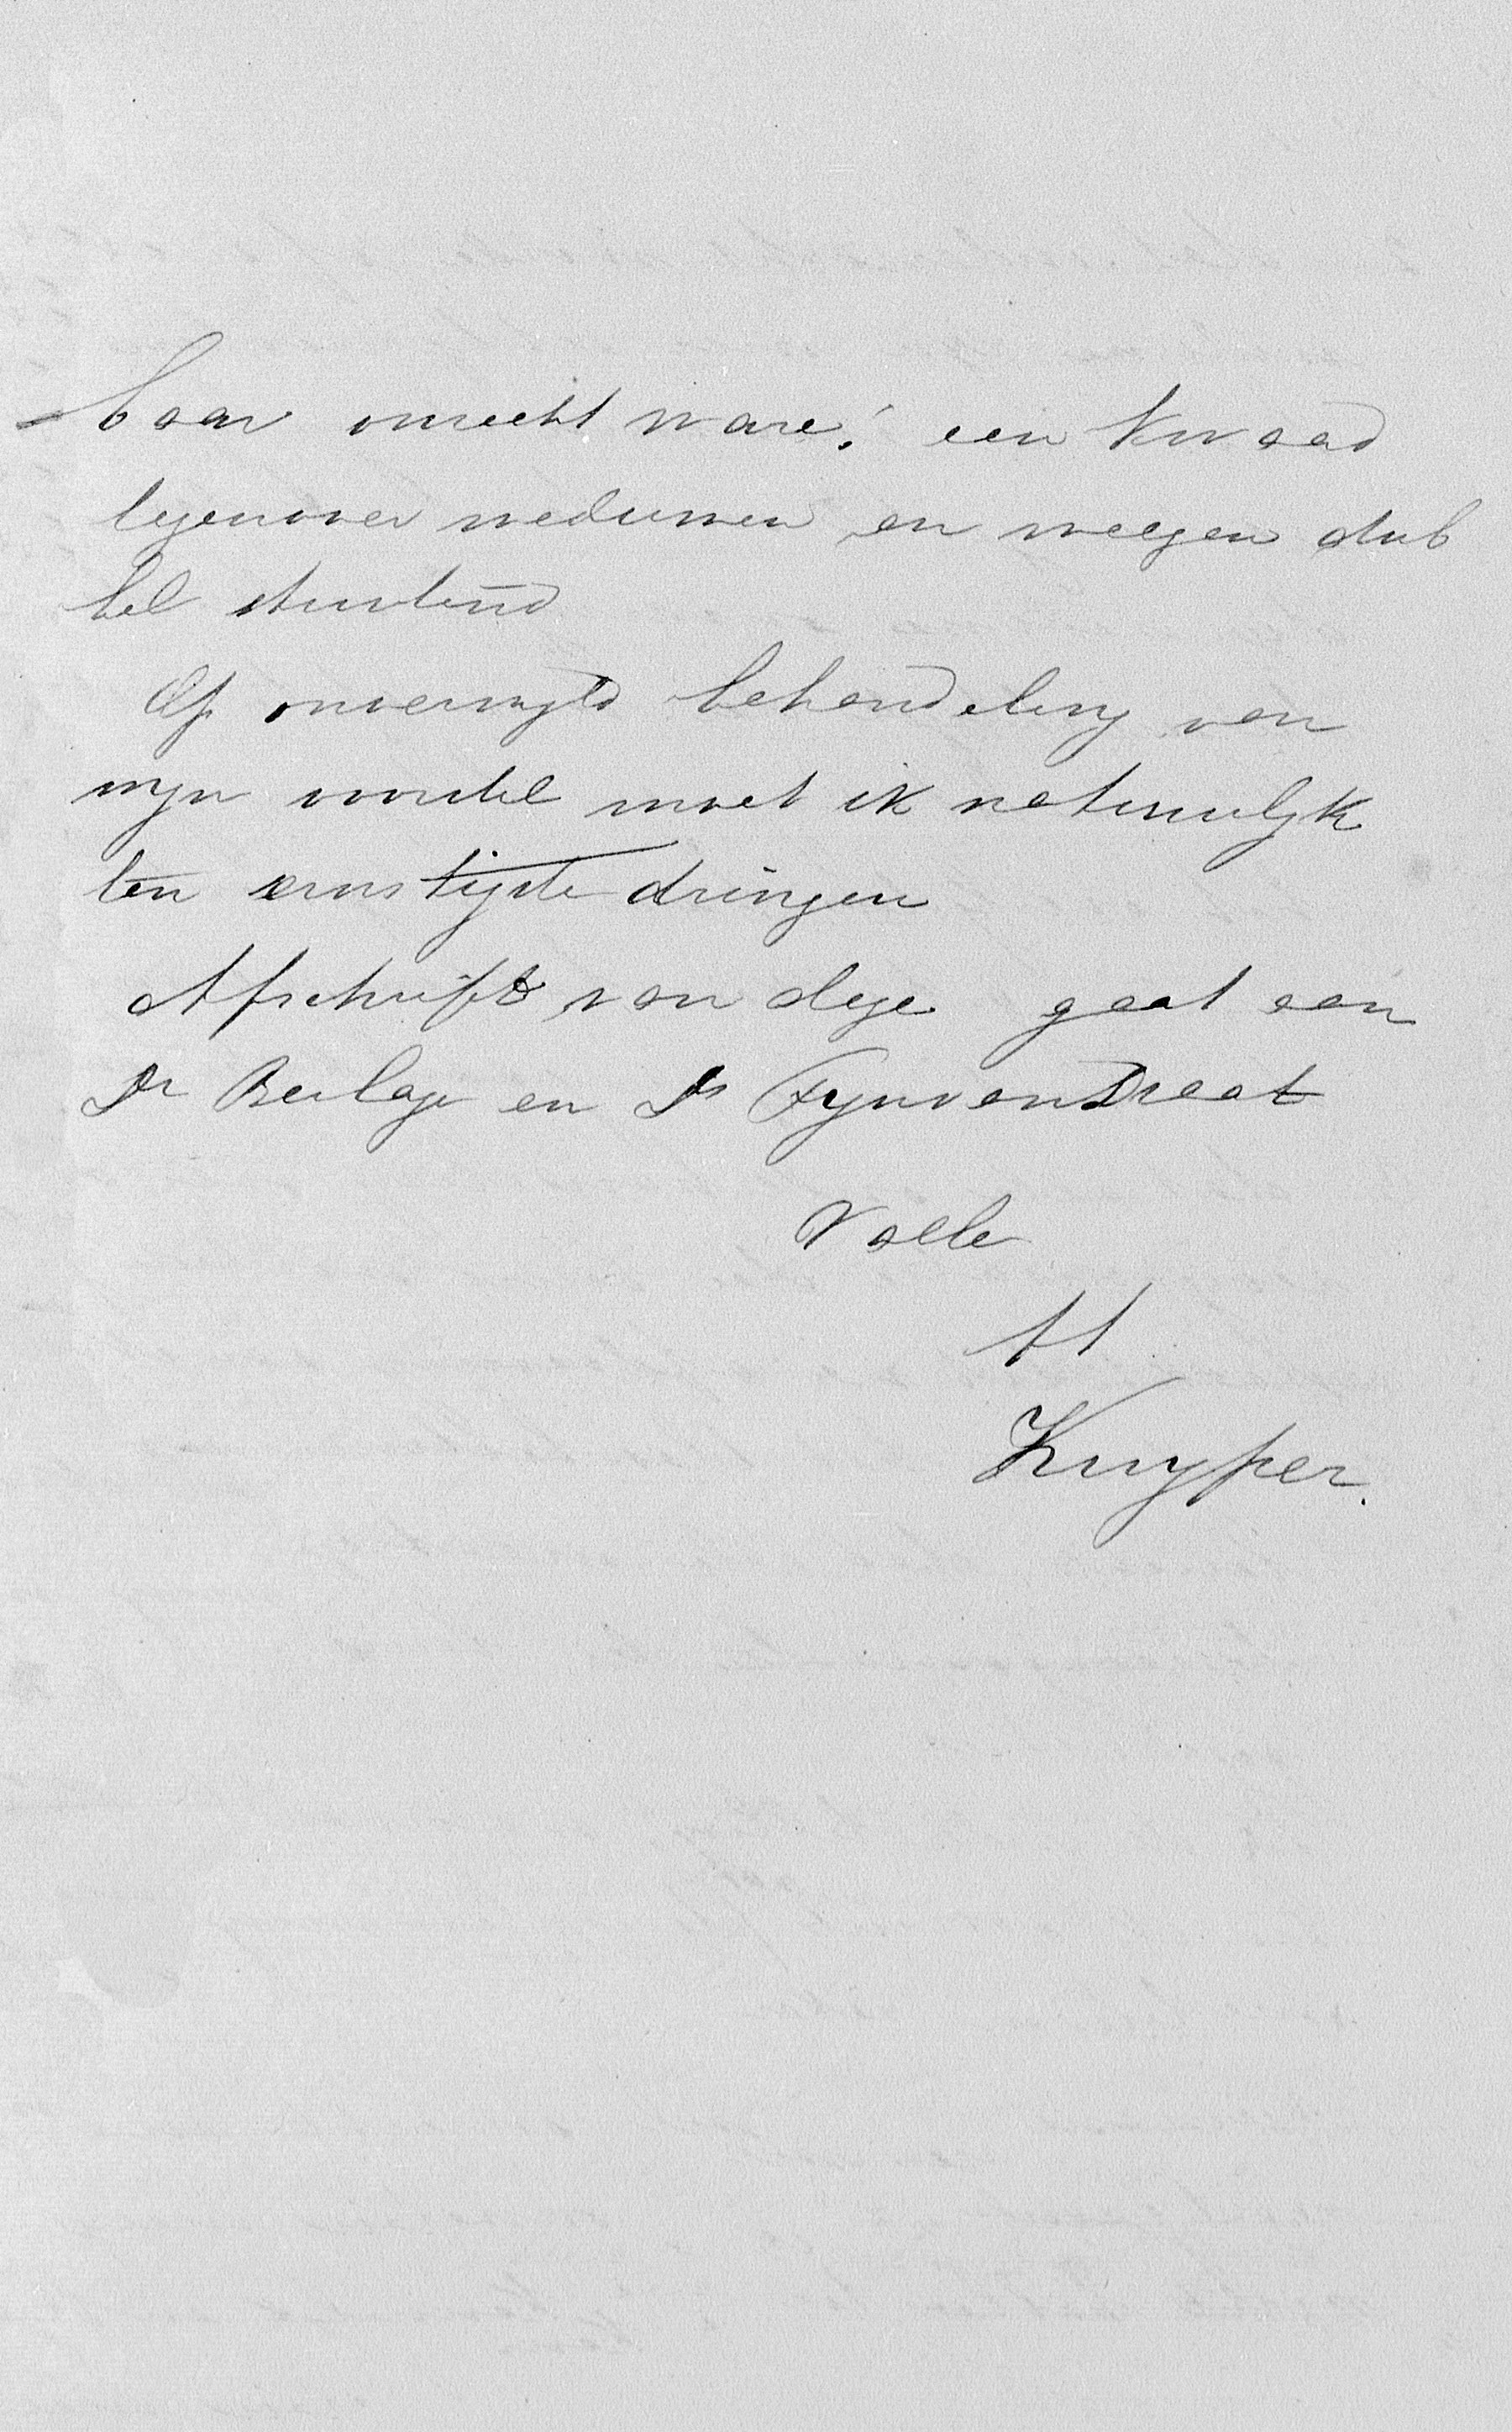 baar onrecht ware! een kwaad
tegenover weduwen en weezen dub
bel stuitend
Op onverwyld behandeling van
myn voorstel moet ik natuurlyk
ten ernstigste dringen
Afschrift van deze gaat aan
Dr Berlage en Ds Fynvandraat
Valle
tt
Kuyper.